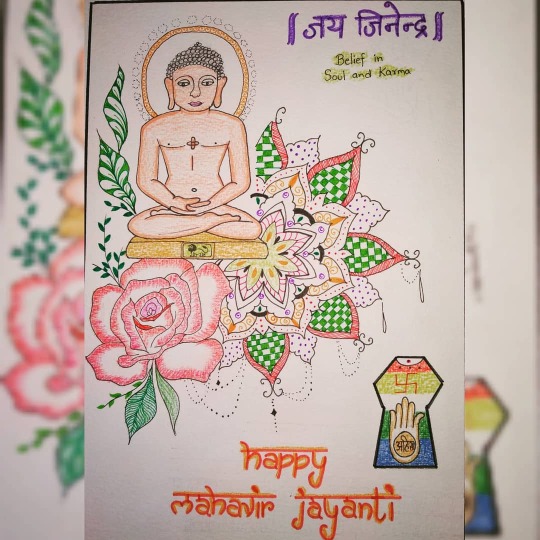 ॥ जय जिनेन्द्र ॥
Belief in
Soul and Karma
अहिंसा
happy
mahavir jayanti